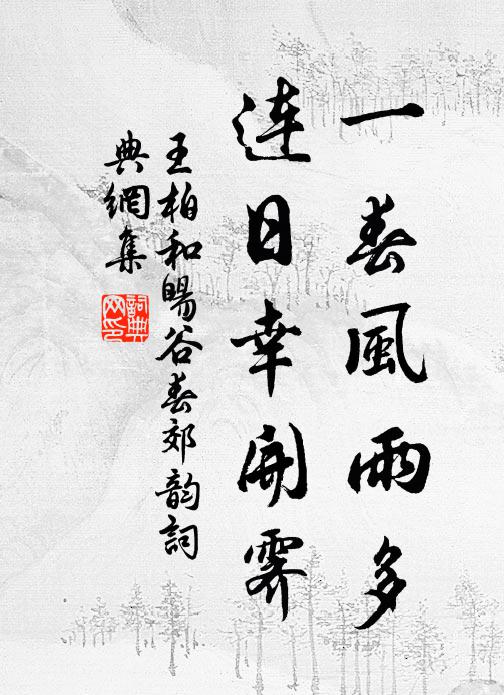 一春風雨多
連日幸開霽
王柏和暘谷春郊韵詞
典網集
詞典
网印